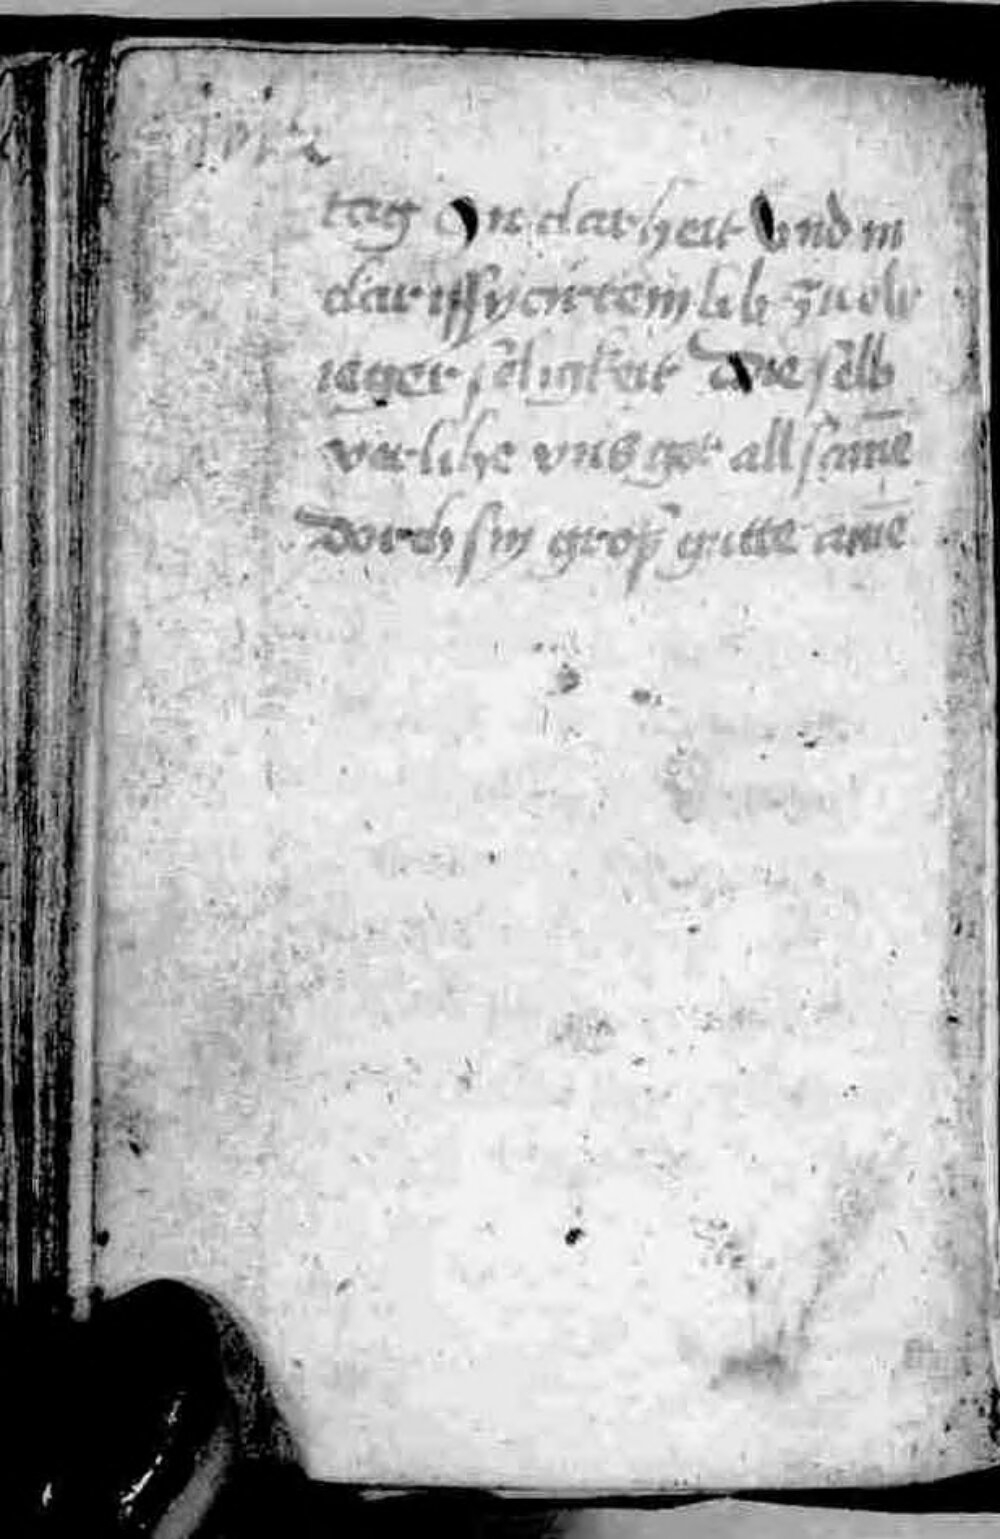 tag In clarheit Vnd in
clarifſycirtem lib zu ew
ieger ſeligkeit Die ſelb
verlihe vns got allſame̅
Dorch ſin groß gutte ame̅